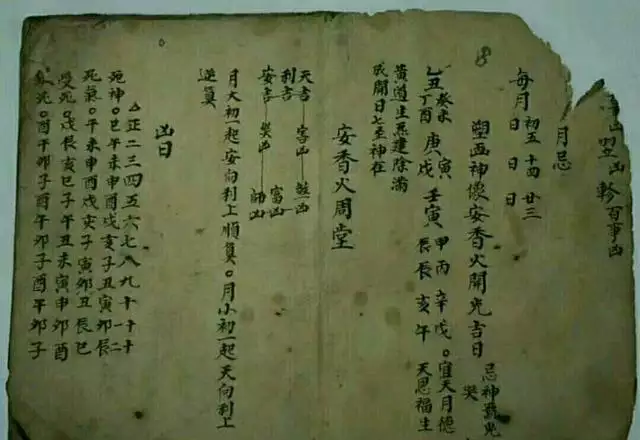 山 望山 軫百事凶
月忌
每月初五日十四日廿三日
塑画神像安香火開光吉日 忌神號鬼哭
乙丑 癸未 丁酉 庚戌 寅 壬寅 甲辰 丙辰 辛亥 戊午。宜天月德 天恩福生
黄道生炁建除滿
成開日七至神在
安香火周堂
天吉 害凶
利吉 富凶
安吉 災凶 師凶
月大初一起安向利上順算。月小初一起天向利上
逆算
凶日
正二三四五六七八九十十一十二
死神。巳午未申酉戌亥子丑寅卯辰
死氣。午未申酉戌亥子寅卯丑辰巳
受死。戌辰亥巳子午丑未寅申卯酉
死。酉午卯子酉午卯子酉午卯子